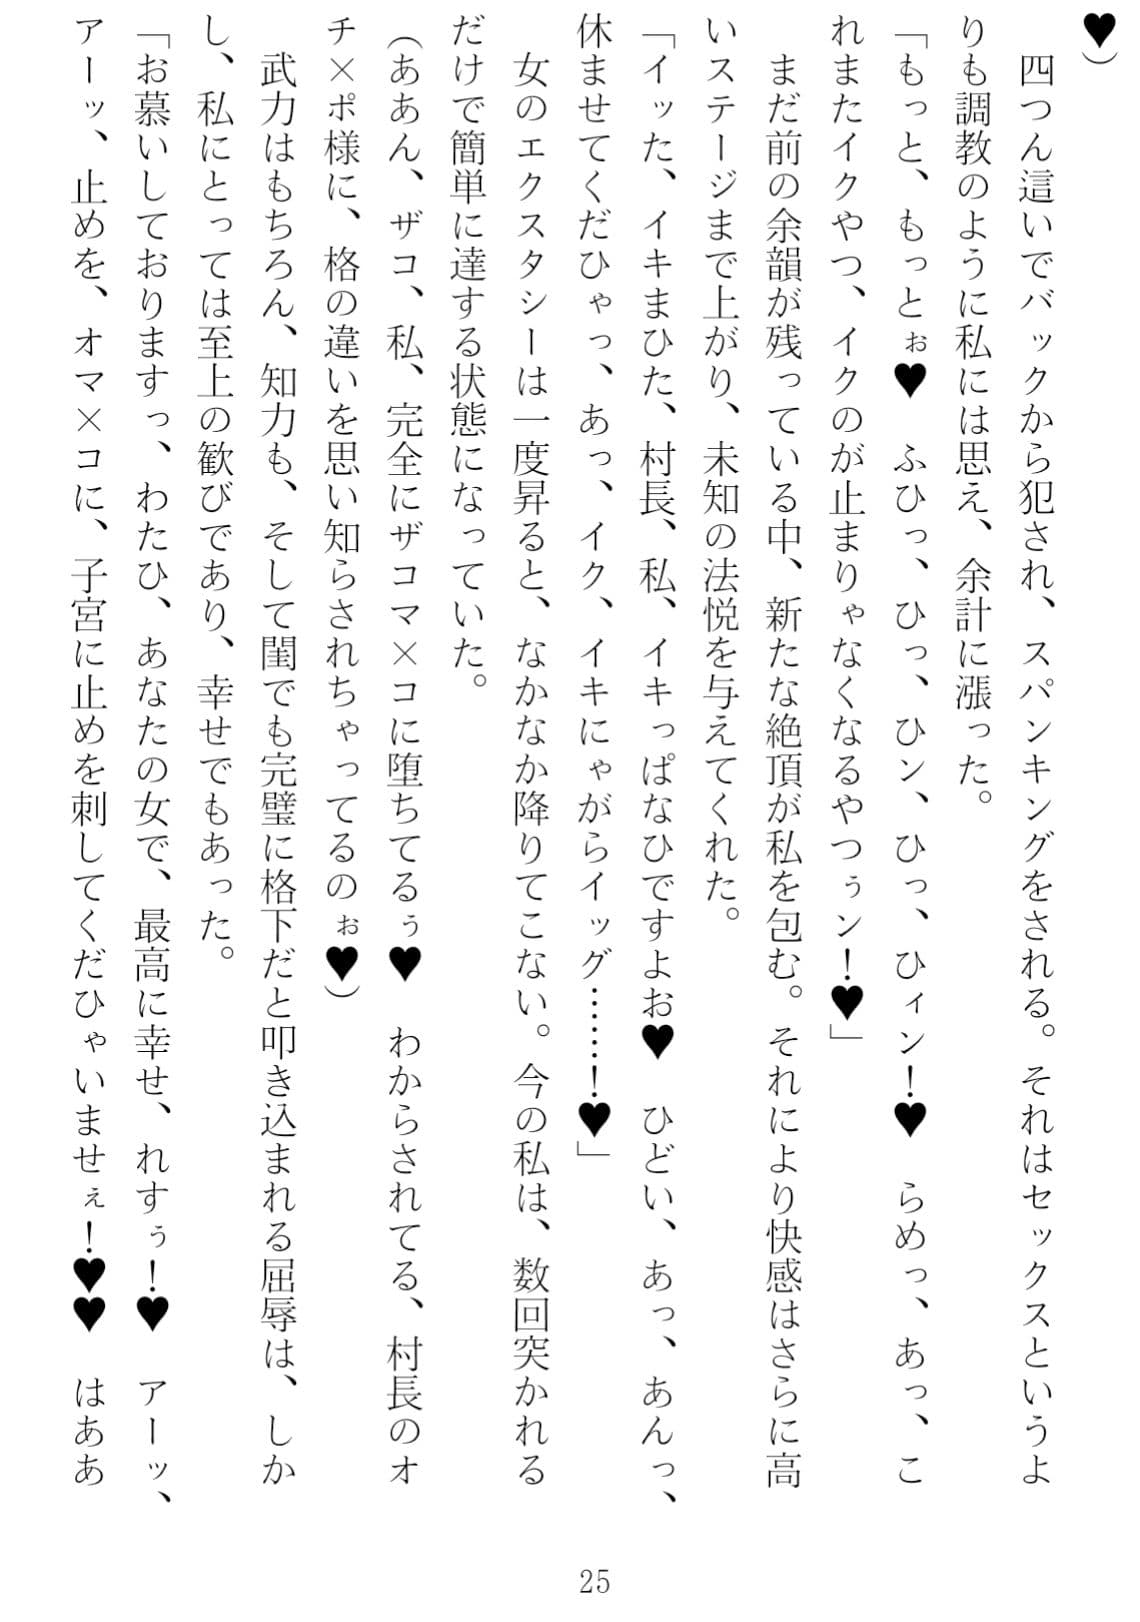 ♥）
　四つん這いでバックから犯され、スパンキングをされる。それはセックスというよ
りも調教のように私には思え、余計に漲った。
「もっと、もっとぉ♥　ふひっ、ひっ、ひン、ひっ、ひィン！♥　らめっ、あっ、こ
れまたイクやつ、イクのが止まりゃなくなるやつぅン！♥」
　まだ前の余韻が残っている中、新たな絶頂が私を包む。それにより快感はさらに高
いステージまで上がり、未知の法悦を与えてくれた。
「イッた、イキまひた、村長、私、イキっぱなひですよお♥　ひどい、あっ、あんっ、
休ませてくだひゃっ、あっ、イク、イキにゃがらイッグ……！♥」
　女のエクスタシーは一度昇ると、なかなか降りてこない。今の私は、数回突かれる
だけで簡単に達する状態になっていた。
（ああん、ザコ、私、完全にザコマ×コに堕ちてるぅ♥　わからされてる、村長のオ
チ×ポ様に、格の違いを思い知らされちゃってるのぉ♥）
　武力はもちろん、知力も、そして閨でも完璧に格下だと叩き込まれる屈辱は、しか
し、私にとっては至上の歓びであり、幸せでもあった。
「お慕いしておりますっ、わたひ、あなたの女で、最高に幸せ、れすぅ！♥　アーッ、
アーッ、止めを、オマ×コに、子宮に止めを刺してくだひゃいませぇ！♥♥　はああ
25